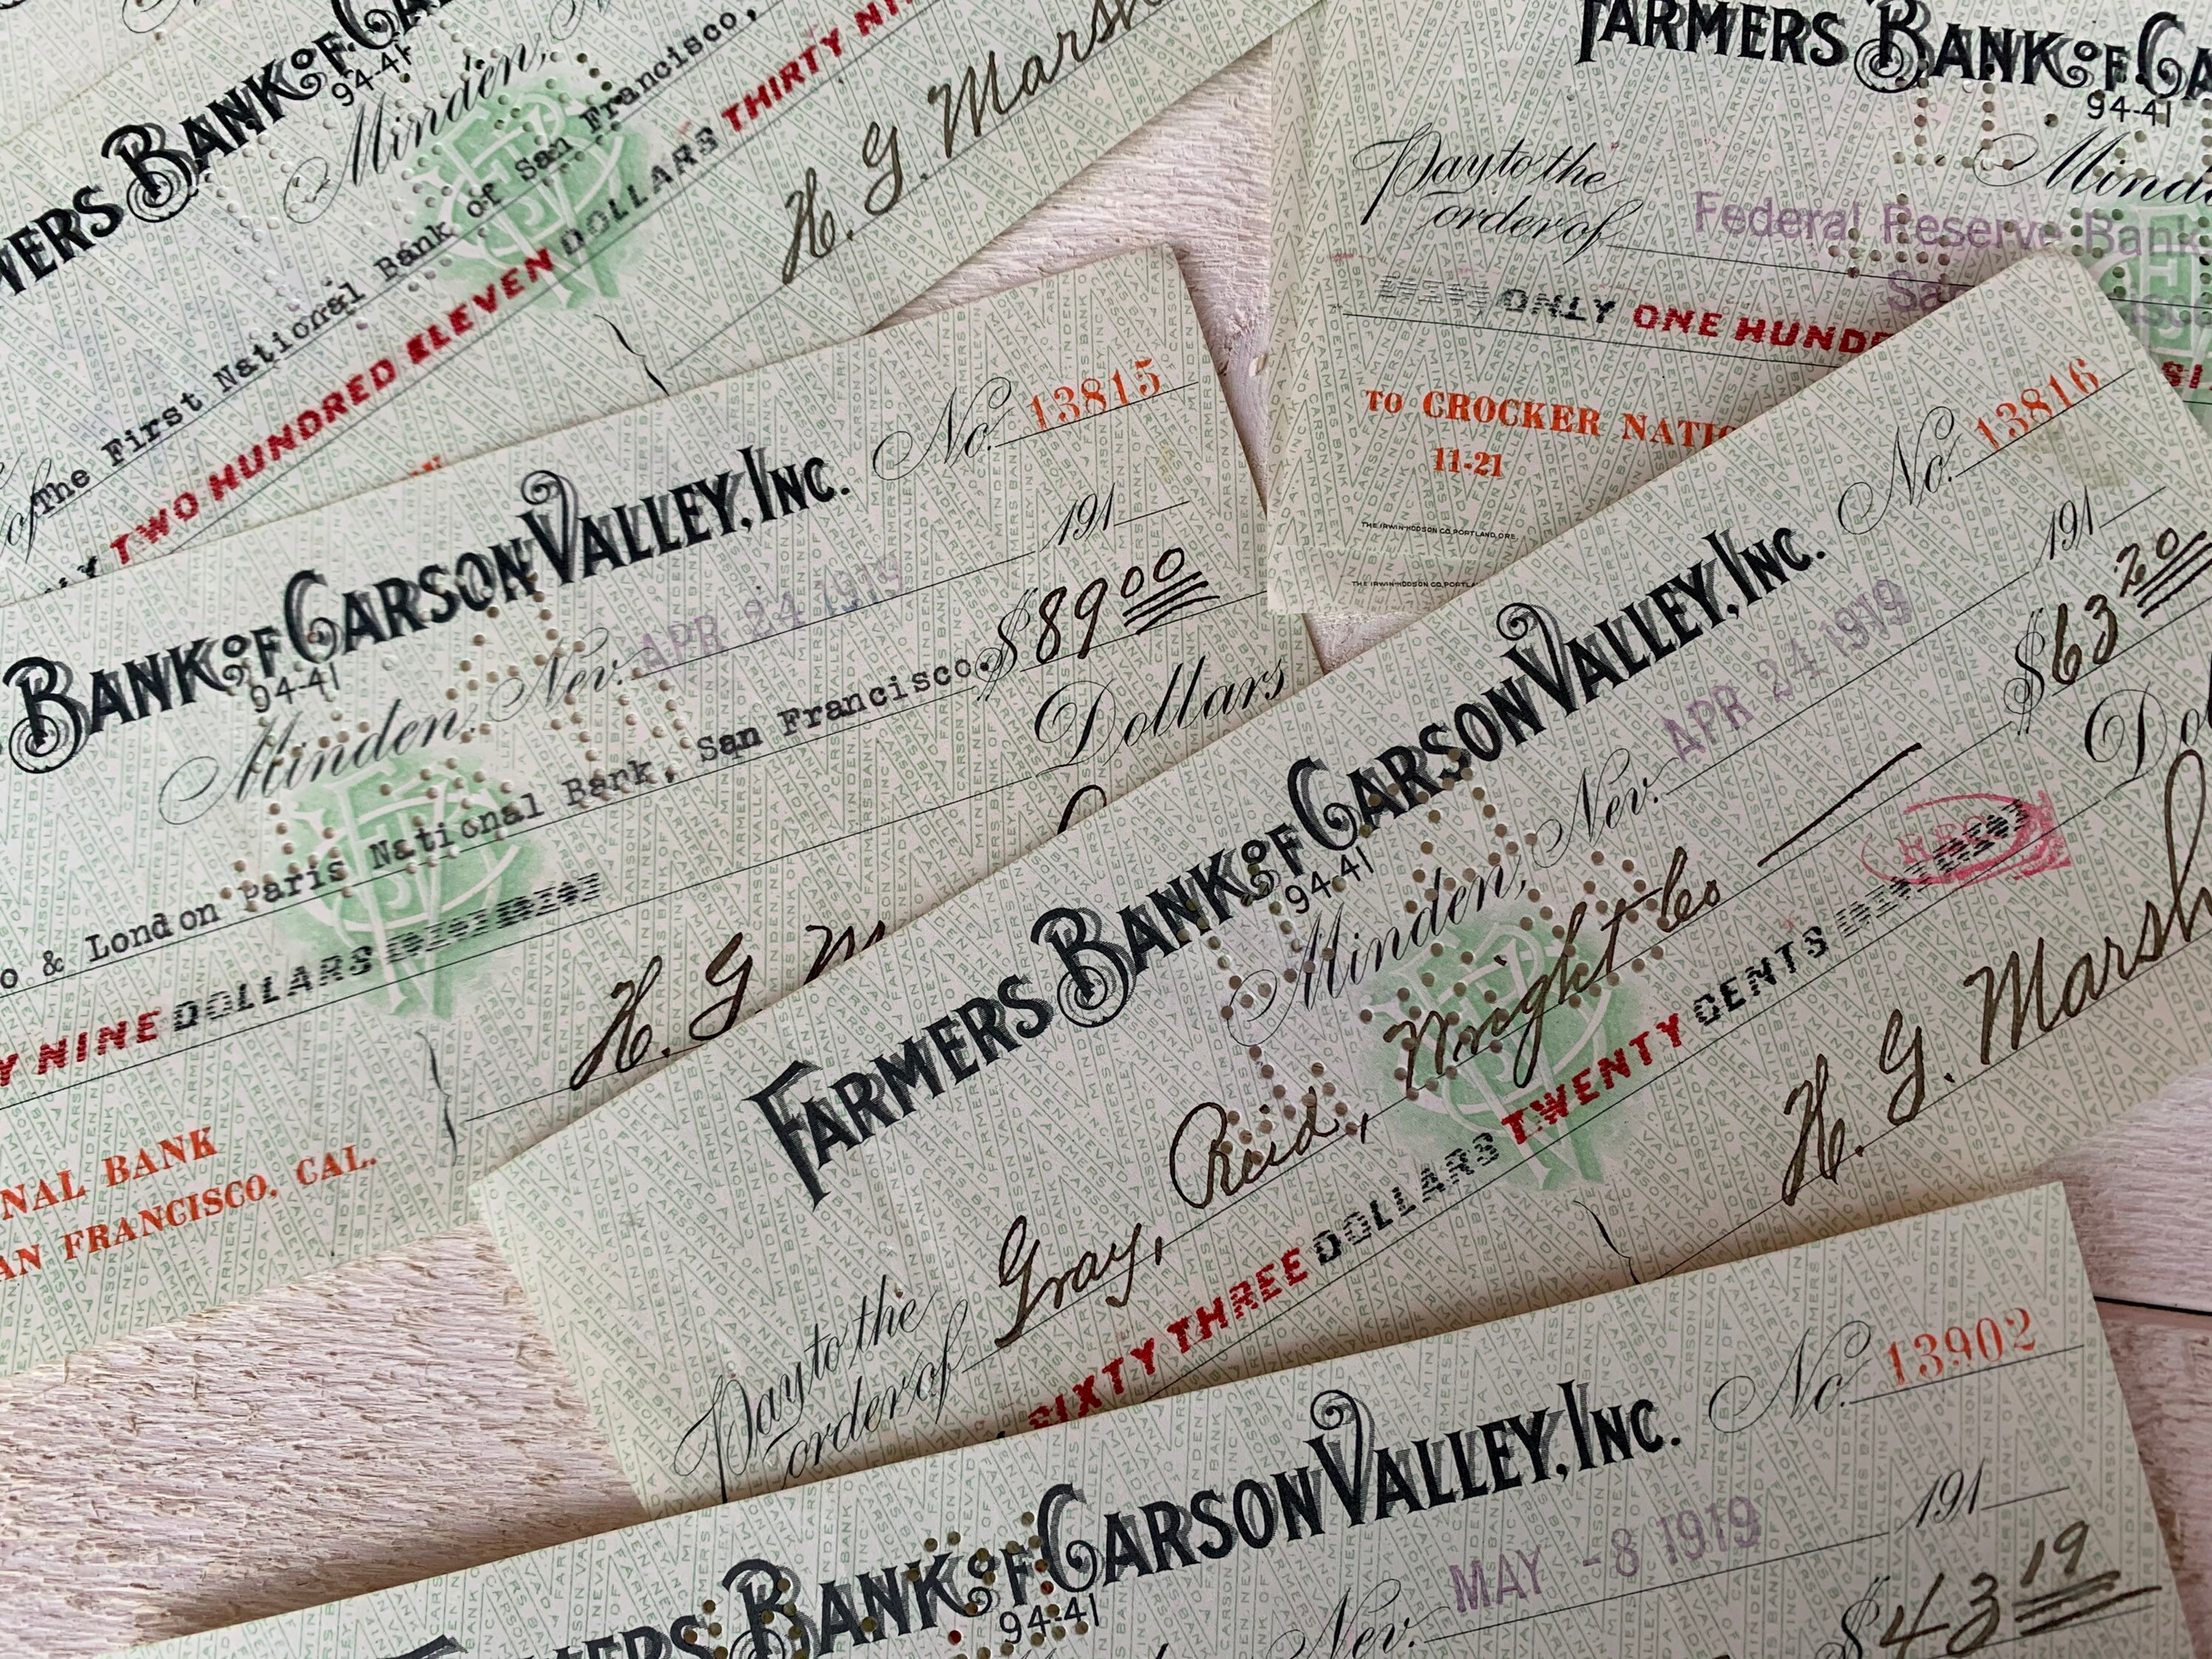 BANK OF CA
94-41
Minden,
The First National Bank of San Francisco,
TWO HUNDRED ELEVEN DOLLARS THIRTY
H. G. Marsh
FARMERS BANK OF CA
94-41
Pay to the
order of Federal Reserve Bank
ONLY ONE HUND
TO CROCKER NATIO
11-21
THE IRWIN-HODSON CO. PORTLAND, ORE.
THE IRWIN-HODSON CO. PORTL
No. 13815
BANK OF CARSON VALLEY, INC.
94-41
Minden, Nev. APR 24 1919 191
& London Paris National Bank, San Francisco. $89 00
Dollars
NINE DOLLARS
H. G.
NAL BANK
AN FRANCISCO, CAL.
No. 13816
FARMERS BANK OF CARSON VALLEY, INC.
94-41
Minden, Nev. APR 24 1919 191
Pay to the
order of Gray, Reid, Wright Co $63 20
SIXTY THREE DOLLARS TWENTY CENTS
H. G. Marsh
No. 13902
BANK OF CARSON VALLEY, INC.
94-41
Nev. MAY -8 1919 191
$43 19